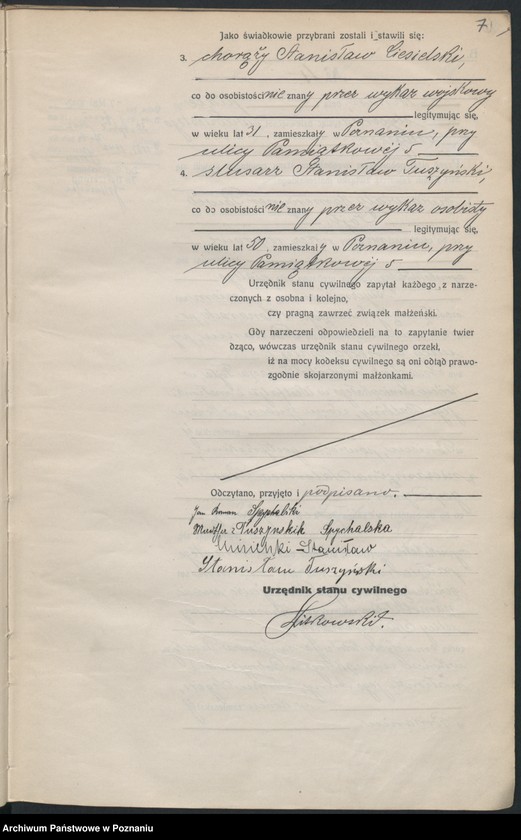 7
Jako świadkowie przybrani zostali i stawili się:
3. chorąży Stanisław Ciesielski,
co do osobistości nie znany przez wykaz wojskowy
legitymując się,
w wieku lat 31, zamieszkały w Poznaniu, przy
ulicy Pamiątkowej 5
4. ślusarz Stanisław Tuszyński,
co do osobistości nie znany przez wykaz osobisty
legitymując się,
w wieku lat 50, zamieszkały w Poznaniu, przy
ulicy Pamiątkowej 5
Urzędnik stanu cywilnego zapytał każdego z narze-
czonych z osobna i kolejno,
czy pragną zawrzeć związek małżeński.
Gdy narzeczeni odpowiedzieli na to zapytanie twier
dząco, wówczas urzędnik stanu cywilnego orzekł,
iż na mocy kodeksu cywilnego są oni odtąd prawo-
zgodnie skojarzonymi małżonkami.
Odczytano, przyjęto i podpisano.
Jan Roman Spychalski
z Tuszyńskich Spychalska
Stanisław
Stanisław Tuszyński
Urzędnik stanu cywilnego
Archiwum Państwowe w Poznaniu